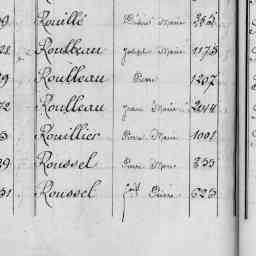 Rouillé Pierre Marie 245
Roulleau Joseph Marie 1175
Roulleau Pierre 1207
Roulleau Jean Marie 2044
Rouillier Pierre Marie 1001
Roussel Pierre Marie 255
Roussel Jph Pierre 525